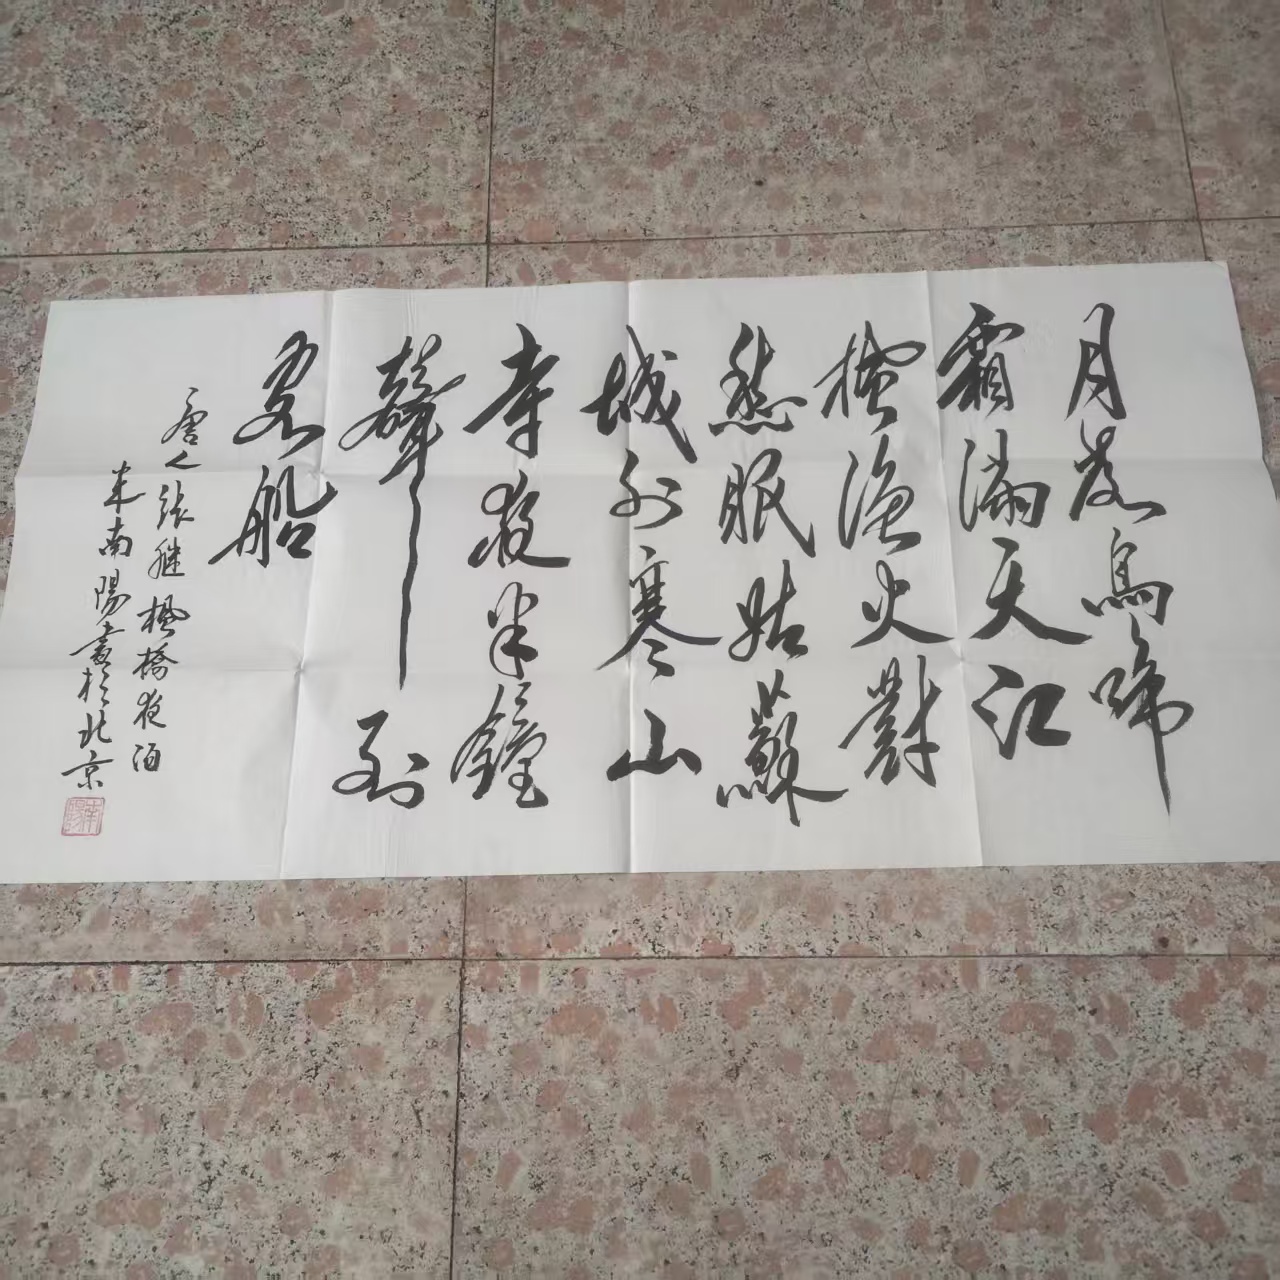 月落烏啼
霜滿天江
楓漁火對
愁眠姑蘇
城外寒山
寺夜半鐘
聲到
客船
唐人張継楓橋夜泊
米南陽書於北京